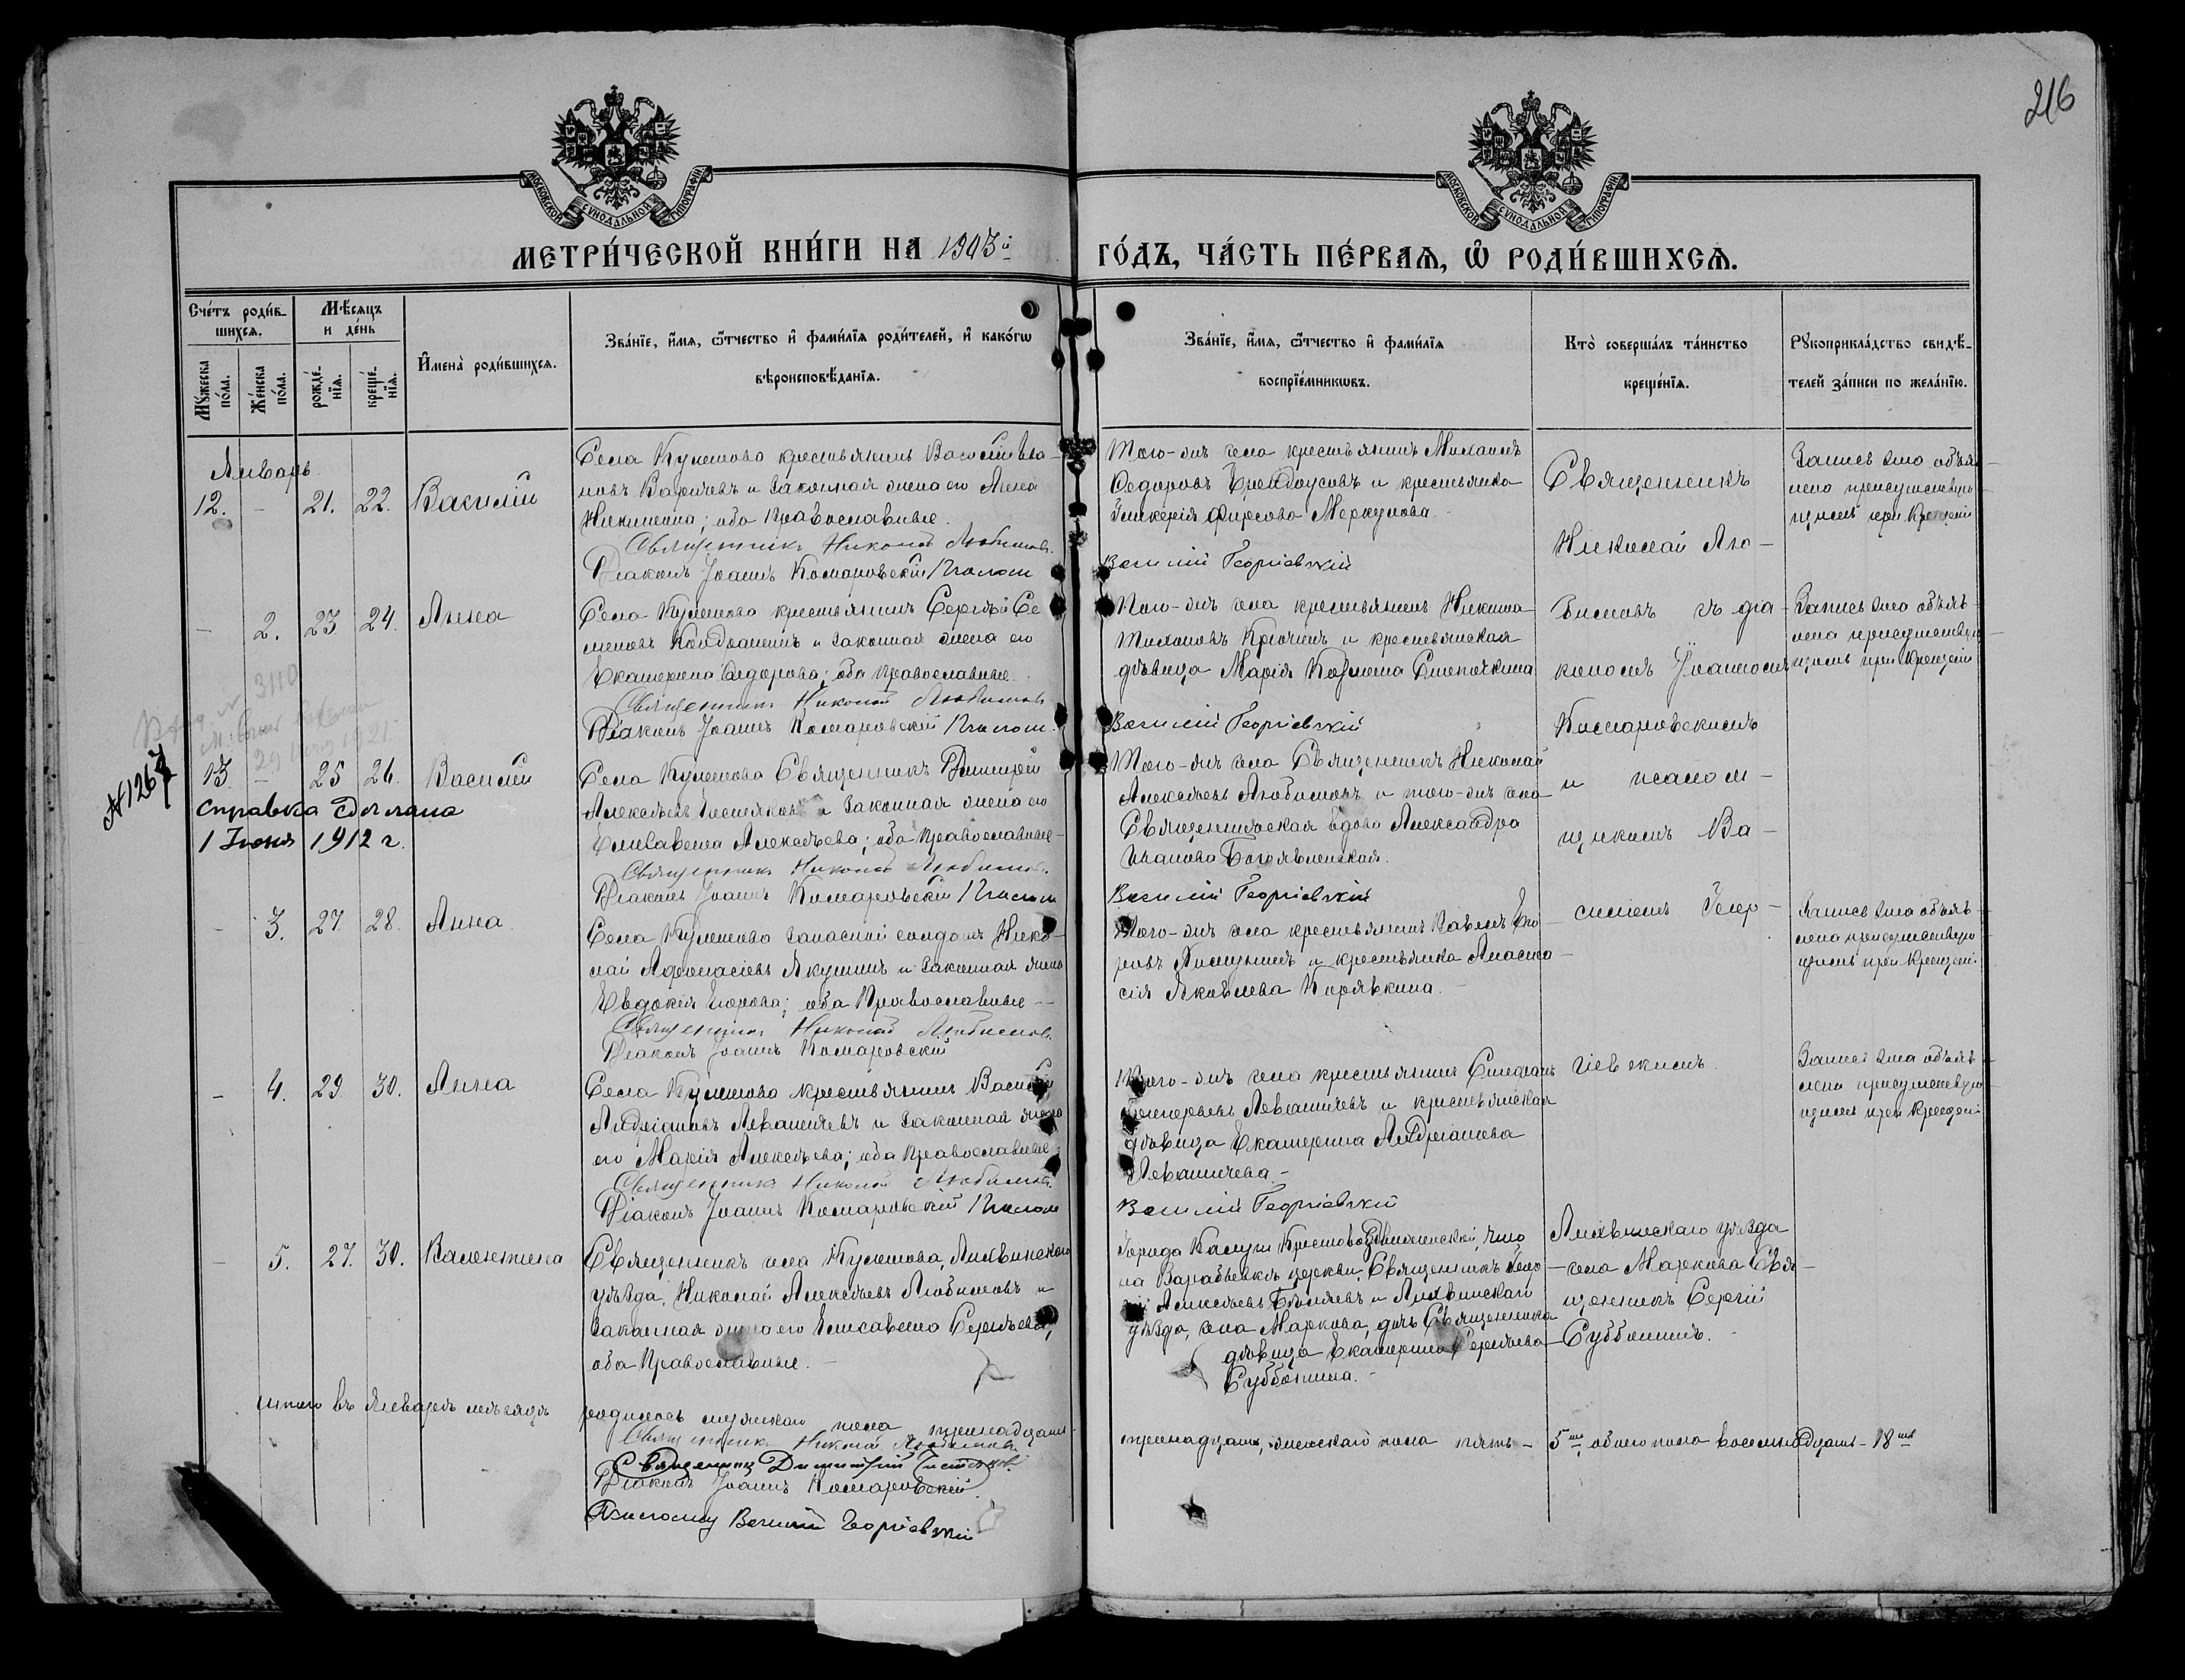 216
МОСКОВСКОЙ СѴНОДАЛЬНОЙ ТИПОГРАФІИ
МОСКОВСКОЙ СѴНОДАЛЬНОЙ ТИПОГРАФІИ
МЕТРИ́ЧЕСКОЙ КНИ́ГИ НА 1903й
ГО́ДЪ, ЧА́СТЬ ПЕ́РВАѦ, Ѡ҆ РОДИ́ВШИХСѦ.
Сче́тъ роди́в-
шихсѧ.
Мꙋ́жеска по́ла.
Же́нска по́ла.
Мѣ́сѧцъ
и де́нь
рожде́-
нїѧ.
креще́-
нїѧ.
И҆мена̀ роди́вшихсѧ.
Зва́нїе, и҆́мѧ, ѻ҆́тчество и҆ фами́лїѧ роди́телей, и҆ како́гѡ
вѣроисповѣ́данїѧ.
Зва́нїе, и҆́мѧ, ѻ҆́тчество и҆ фами́лїѧ
воспрїе́мникѡвъ.
Кто̀ соверша́лъ та́инство
креще́нїѧ.
Рꙋкоприкла́дство свидѣ́-
телей за́писи по жела́нїю.
Январь
12. - 21. 22. Василій
Села Кулешова крестьянинъ Василій Ива-
новъ и законная жена его
Никитина; оба Православные.
Священникъ Николай Любимовъ.
Діаконъ Іоаннъ Комаровскій Псалом
Того-жъ села крестьянинъ Михаилъ
Федоровъ и крестьянка
Гликерія Фирсова Меркулова.
Василій Георгіевскій
Священникъ
Николай Лю-
Запись эта объяв-
лена присутствую-
щимъ при Крещеніи
- 2. 23. 24. Анна
Села Кулешова крестьянинъ Сергѣй Се
меновъ и законная жена его
Екатерина Федорова; оба Православные.
Священникъ Николай Любимовъ
Діаконъ Іоаннъ Комаровскій Псалом
Того-жъ села крестьянинъ Никита
Тихоновъ и крестьянская
дѣвица Марія
Василій Георгіевскій
бимовъ съ діа-
кономъ Іоанномъ
Комаровскимъ
Запись эта объяв-
лена присутствую-
щимъ при Крещеніи
3110
1921.
№1267
13. - 25 26. Василій
справка сдѣлана
1 Іюня 1912 г.
Села Кулешова Священникъ Димитрій
Алексѣевъ и законная жена его
Елисавета Алексѣева; оба Православные-
Священникъ Николай Любимовъ.
Діаконъ Іоаннъ Комаровскій Псалом
Того-жъ села Священникъ Николай
Алексѣевъ Любимовъ и того-жъ села
Священническая вдова Александра
Иванова Богоявленская.
Василій Георгіевскій
и псалом-
щикомъ Ва-
- 3. 27. 28. Анна
Села Кулешова запасной солдатъ Нико-
лай Афонасіевъ Якушинъ и законная жена
Евдокія Егорова; оба Православные--
Священникъ Николай Любимовъ.
Діаконъ Іоаннъ Комаровскій
Того-жъ села крестьянинъ Павелъ Его
ровъ и крестьянка Анаста-
сія Яковлева Корявкина.
силіемъ Геор-
Запись эта объяв-
лена присутствую-
щимъ при Крещеніи
- 4. 29 30. Анна
Села Кулешова крестьянинъ Василій
Андріановъ Левашичевъ и законная жена
его Марія Алексѣева; оба Православные-
Священникъ Николай Любимовъ.
Діаконъ Іоаннъ Комаровскій Псалом
Того-жъ села крестьянинъ Стефанъ
Левашичевъ и крестьянская
дѣвица Екатерина Андріанова
Левашичева.-
Василій Георгіевскій
гіевскимъ.
Запись эта объяв-
лена присутствую-
щимъ при Крещеніи
- 5. 27. 30. Валентина
Священникъ села Кулешова, Лихвинскаго
уѣзда, Николай Алексѣевъ Любимовъ и
законная жена его Елисавета Сергѣева;
оба Православные.-
Города Калуги Крестовоздвиженской, что
на церкви, Священникъ Геор
гій Алексѣевъ Бѣляевъ и Лихвинскаго
уѣзда, села Маркова, дочь Священника
дѣвица Екатерина Сергѣева
Субботина.-
Лихвинскаго уѣзда
села Маркова Свя-
щенникъ Сергій
Субботинъ.
Итого въ Январѣ мѣсяцѣ родилось мужскаго пола тринадцать-
тринадцать, женскаго пола пять- 5ть, обоего пола восемнадцать- 18ть
Священникъ Николай Любимовъ
Священникъ Димитрій
Діаконъ Іоаннъ Комаровскій
Псаломщ Василій Георгіевскій